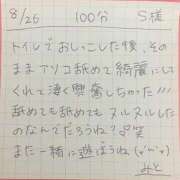 8/26 100分 S様
トイレでおしっこした後、その
ままアソコ舐めて綺麗にして
くれて凄く興奮しちゃった!!!
舐めても舐めてもヌルヌルした
のなんでだろうね?笑
また一緒に遊ぼうね(˘³˘)
みと